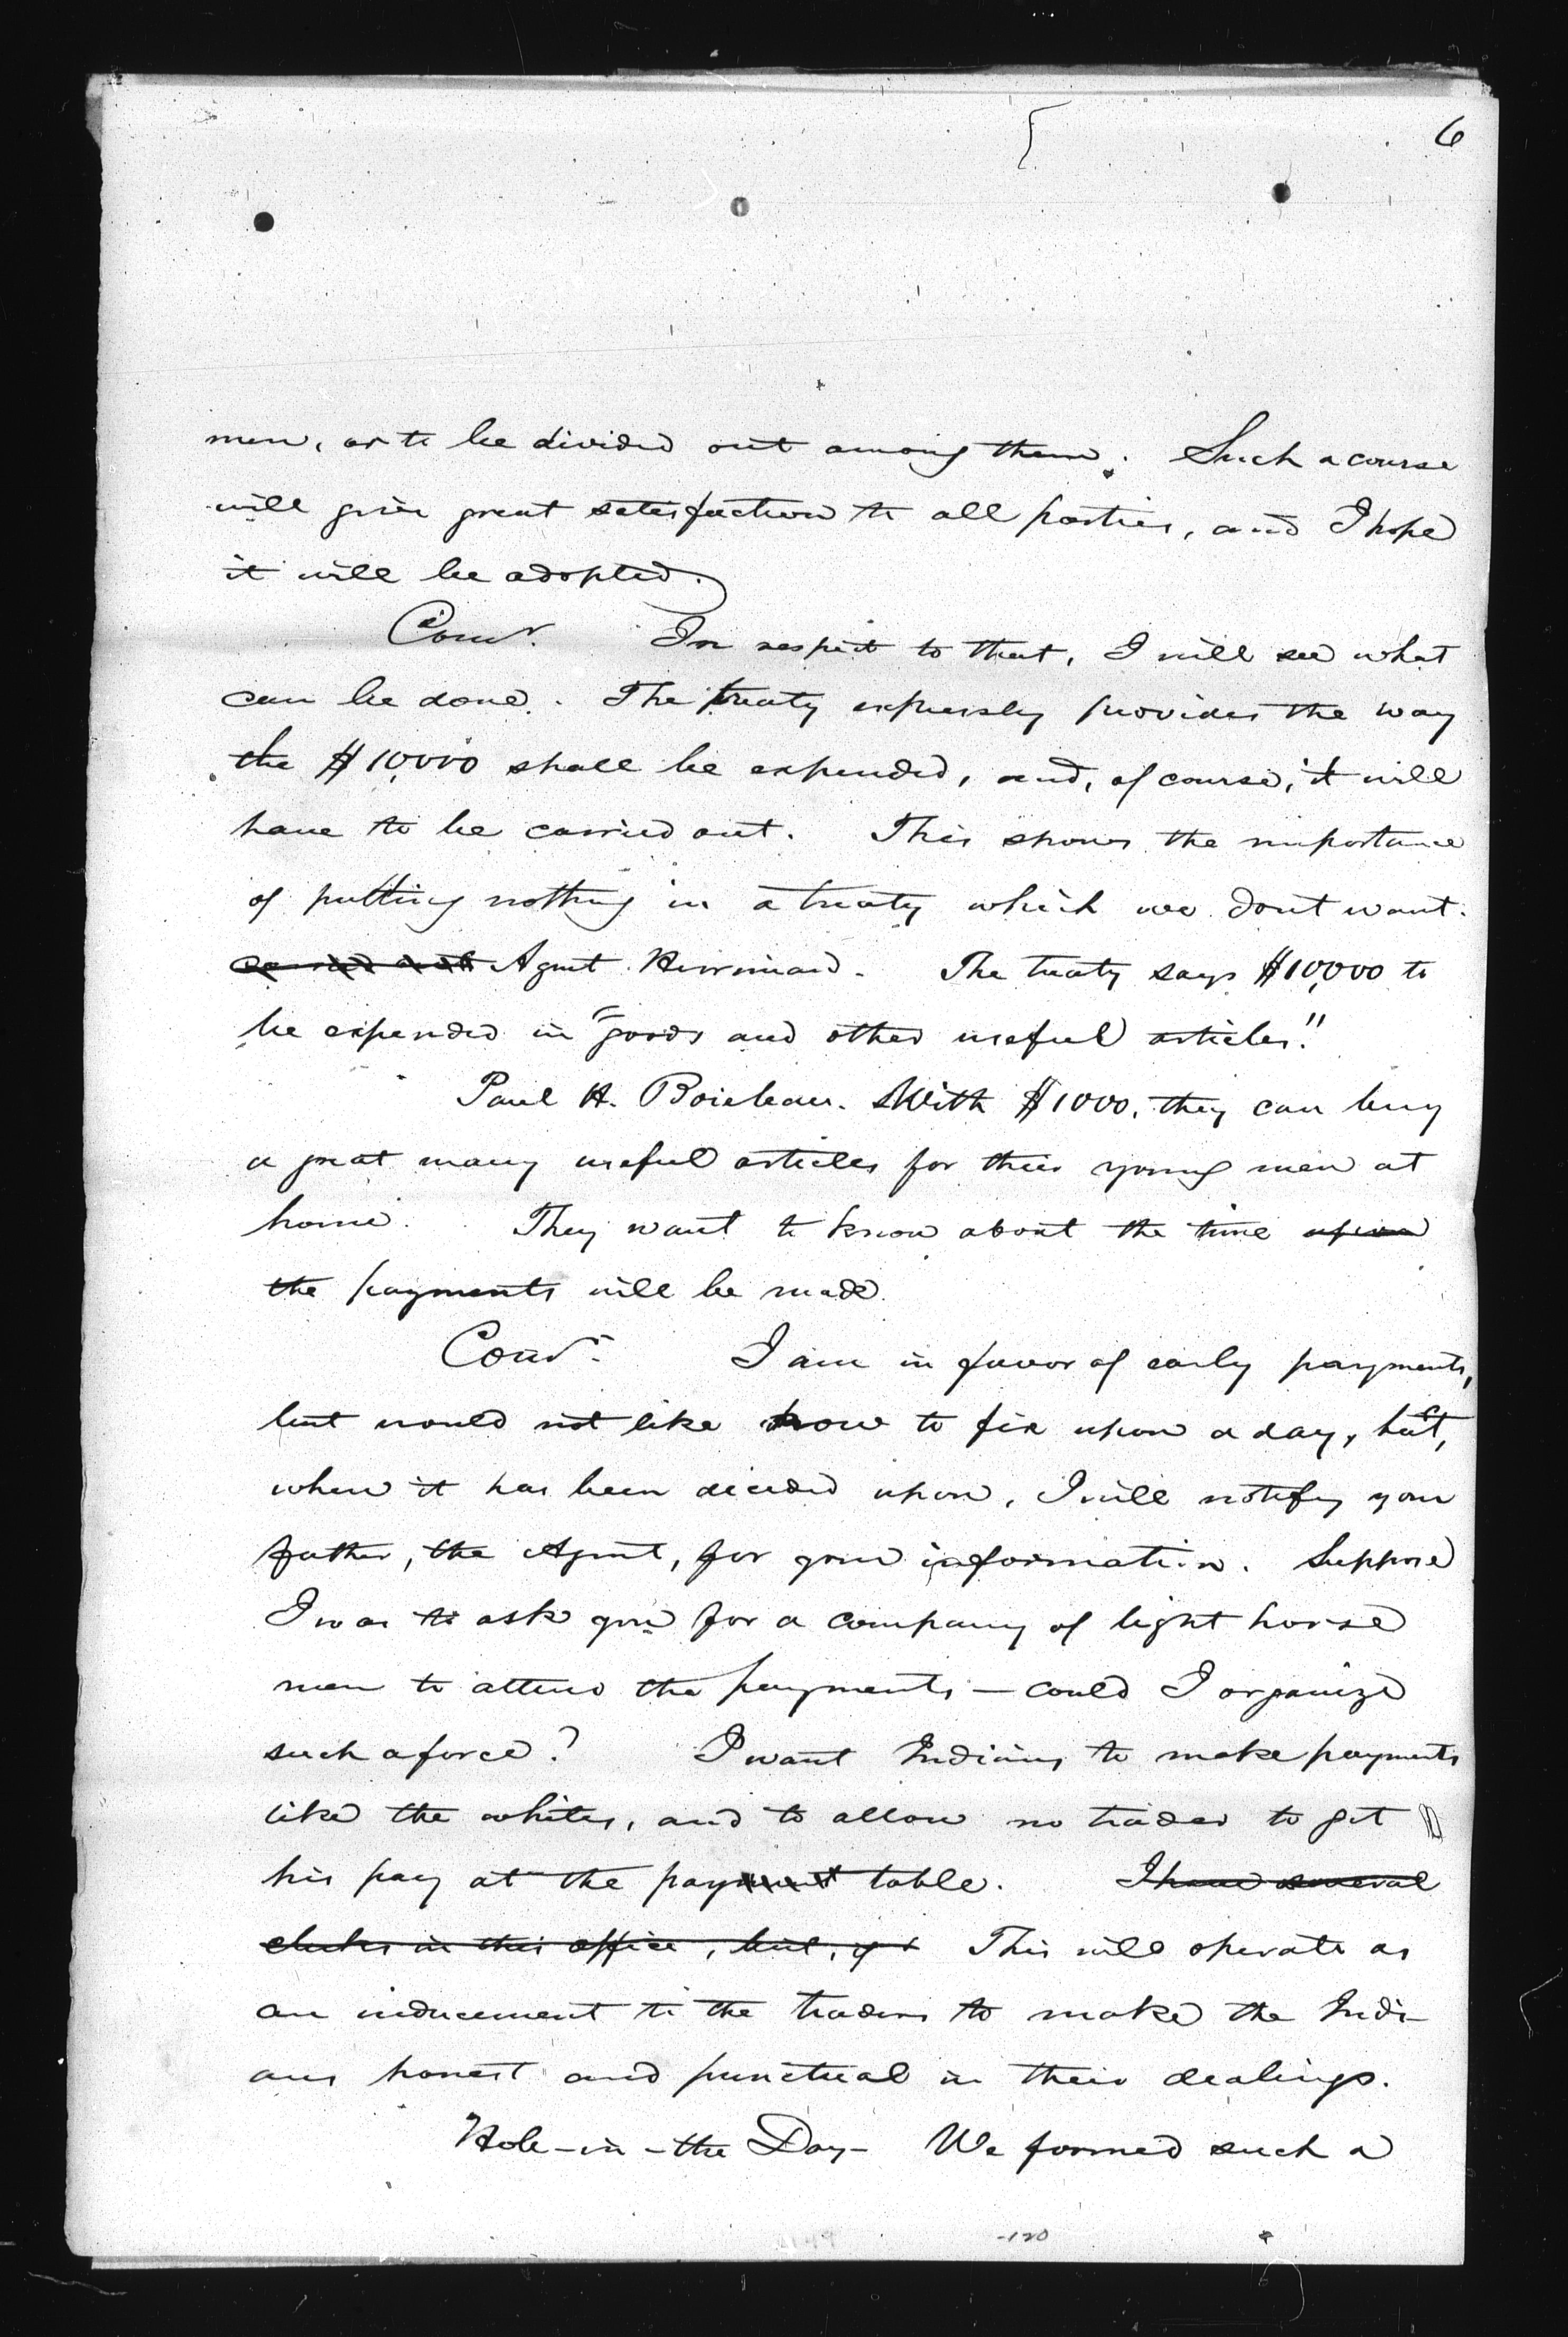 6
men, or to be divided out among them. Such a course
will give great satisfaction to all parties, and I hope
it will be adopted.
Comr. In respect to that, I will see what
can be done. The treaty expressly provides the way
the $10,000 shall be expended, and, of course, it will
have to be carried out. This shows the importance
of putting nothing in a treaty which we dont want.
carried out Agent Herriman. The treaty says $10,000 to
be expended in "goods and other useful articles."
Paul H. Boileau. With $1000, they can buy
a great many useful articles for their young men at
home. They want to know about the time upon
the payments will be made.
Comr. I am in favor of early payments,
but would not like now to fix upon a day, but,
when it has been decided upon, I will notify your
father, the Agent, for your information. Suppose
I was to ask you for a company of light horse
men to attend the payments — could I organize
such a force? I want Indians to make payments
like the whites, and to allow no trader to get
his pay at the payment table. I have several
clerks in this office, but, if I This will operate as
an inducement to the traders to make the Indi-
ans honest and punctual in their dealings.
Hole-in-the Day- We formed such a
-120